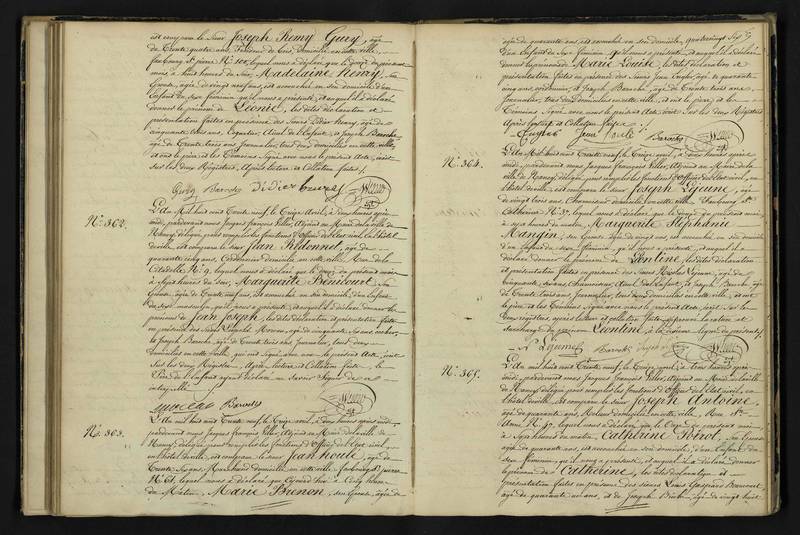 est comparu le Sieur Joseph Remy Guery, âgé
de Trente quatre ans, domicilié en cette ville,
faubourg St. pierre N.° 101, lequel nous a déclaré que le douze du présent
mois, à huit heures du Soir, Madelaine Henry, Son
Epouse, âgée de vingt neuf ans, est accouchée en son domicile d'un
Enfant du sexe féminin qu'il nous a présenté, et auquel il a déclaré
donner le prénom de Léonie, les dites déclaration et
présentation faites en présence des Sieurs Didier Henry, âgé de
cinquante trois ans, Ayeul de l'Enfant, et Joseph Baroche
âgé de Trente trois ans, Journalier, tous deux domiciliés en cette ville,
et ont le père, et les Témoins Signé avec nous le présent Acte, inscrit
sur les deux Registres, Après lecture et Collation faites.
Guery Baroche Didier
N.° 362.
L'An Mil huit cent Trente neuf, le Treize Avril, à deux heures après
midi, pardevant nous Jacques François Villers, Adjoint au Maire de la ville
de Nancy, délégué pour remplir les fonctions d'Officier de l'Etat civil, en l'hôtel
de ville, est comparu le sieur Jean Redonnet, âgé de
quarante cinq ans, Cordonnier domicilié en cette ville Rue de la
Citadelle N.° 9, lequel nous a déclaré que le douze du présent mois
à sept heures du Soir, Marguerite Bénicourt, Son
Epouse, âgée de Trente neuf ans, est accouchée en son domicile d'un Enfant
du sexe masculin, qu'il nous a présenté, et auquel il a déclaré donner les
prénoms de Jean Joseph, les dites déclaration et présentation faites
en présence des Sieurs Moreau, âgé de cinquante
Joseph Baroche, âgé de Trente trois ans Journalier, tous deux
domiciliés en cette ville, qui ont Signé avec nous le présent Acte, inscrit
sur les deux Registres, Après lecture et Collation faites, le
Père de l'Enfant ayant déclaré ne savoir Signer de ce
interpellé.
Baroche
N.° 363.
L'An mil huit cent Trente neuf, le Treize Avril, à deux heures après midi,
pardevant nous Jacques François Villers, Adjoint au Maire de la ville de
Nancy, délégué pour remplir les fonctions d'Officier de l'Etat civil,
en l'hôtel de ville, est comparu le sieur Jean houlé, âgé de
Trente ans, domicilié en cette ville faubourg St. pierre
N.° 61, lequel nous a déclaré que à Cinq heures
du Matin, Marie Brenon, son Epouse, âgée de
âgée de quarante ans, est accouchée en son domicile
d'un Enfant du Sexe féminin qu'il nous a présenté, et auquel il a déclaré
donner les prénoms de Marie Louise, les dites déclaration et
présentation faites en présence des Sieurs Jean âgé de quarante
cinq ans, et Joseph Baroche, âgé de Trente trois ans
Journalier, tous deux domiciliés en cette ville, et ont le père, et les
Témoins Signé avec nous le présent Acte inscrit Sur les deux Registres
Après lecture et Collation faites.
Jean Baroche
N.° 364.
L'An Mil huit cent Trente neuf, le Treize Avril, à deux heures après
midi, pardevant nous Jacques François Villers, Adjoint au Maire de la
ville de Nancy, délégué pour remplir les fonctions d'Officier de l'Etat civil, en
l'hôtel de ville, est comparu le sieur Joseph Lejeune, âgé
de vingt trois ans, domicilié en cette ville Faubourg Ste.
Catherine N.° 3, lequel nous a déclaré que le douze du présent mois,
à six heures du matin, Marguerite Stéphanie
Mangin, son Epouse, âgée de ans, est accouchée en son domicile
d'un Enfant du sexe féminin, qu'il nous a présenté, et auquel il a
déclaré donner le prénom de Léontine, les dites déclaration
et présentation faites en présence des Sieurs Nicolas Lejeune, âgé de
cinquante ans, Ayeul de l'Enfant, et Joseph Baroche, âgé
de Trente trois ans, Journalier, tous deux domiciliés en cette ville, et ont
le père et les Témoins, Signé avec nous le présent Acte, inscrit Sur les
deux registres, après lecture et collation faites,
surcharge du prénom Léontine, à la dixième ligne du présent.
Lejeune Baroche
N.° 365.
L'An mil huit cent Trente neuf, le Treize Avril, à trois heures après
midi, pardevant nous Jacques François Villers, Adjoint au Maire de la ville
de Nancy, délégué pour remplir les fonctions d'Officier de l'Etat civil, en
l'hôtel de ville, est comparu le sieur Joseph Antoine,
âgé de quarante ans, domicilié en cette ville, Rue Ste.
Anne N.° 57, lequel nous a déclaré, que le Onze du présent mois
à Sept heures du matin, Catherine Poirot, Son Epouse
âgée de quarante ans, est accouchée en son domicile, d'un Enfant du
sexe féminin, qu'il nous a présenté, et auquel il a déclaré donner
le prénom de Catherine, les dites déclaration et
présentation faites en présence des sieurs Louis Gaspard
âgé de quarante un ans, et de Joseph âgé de vingt huit